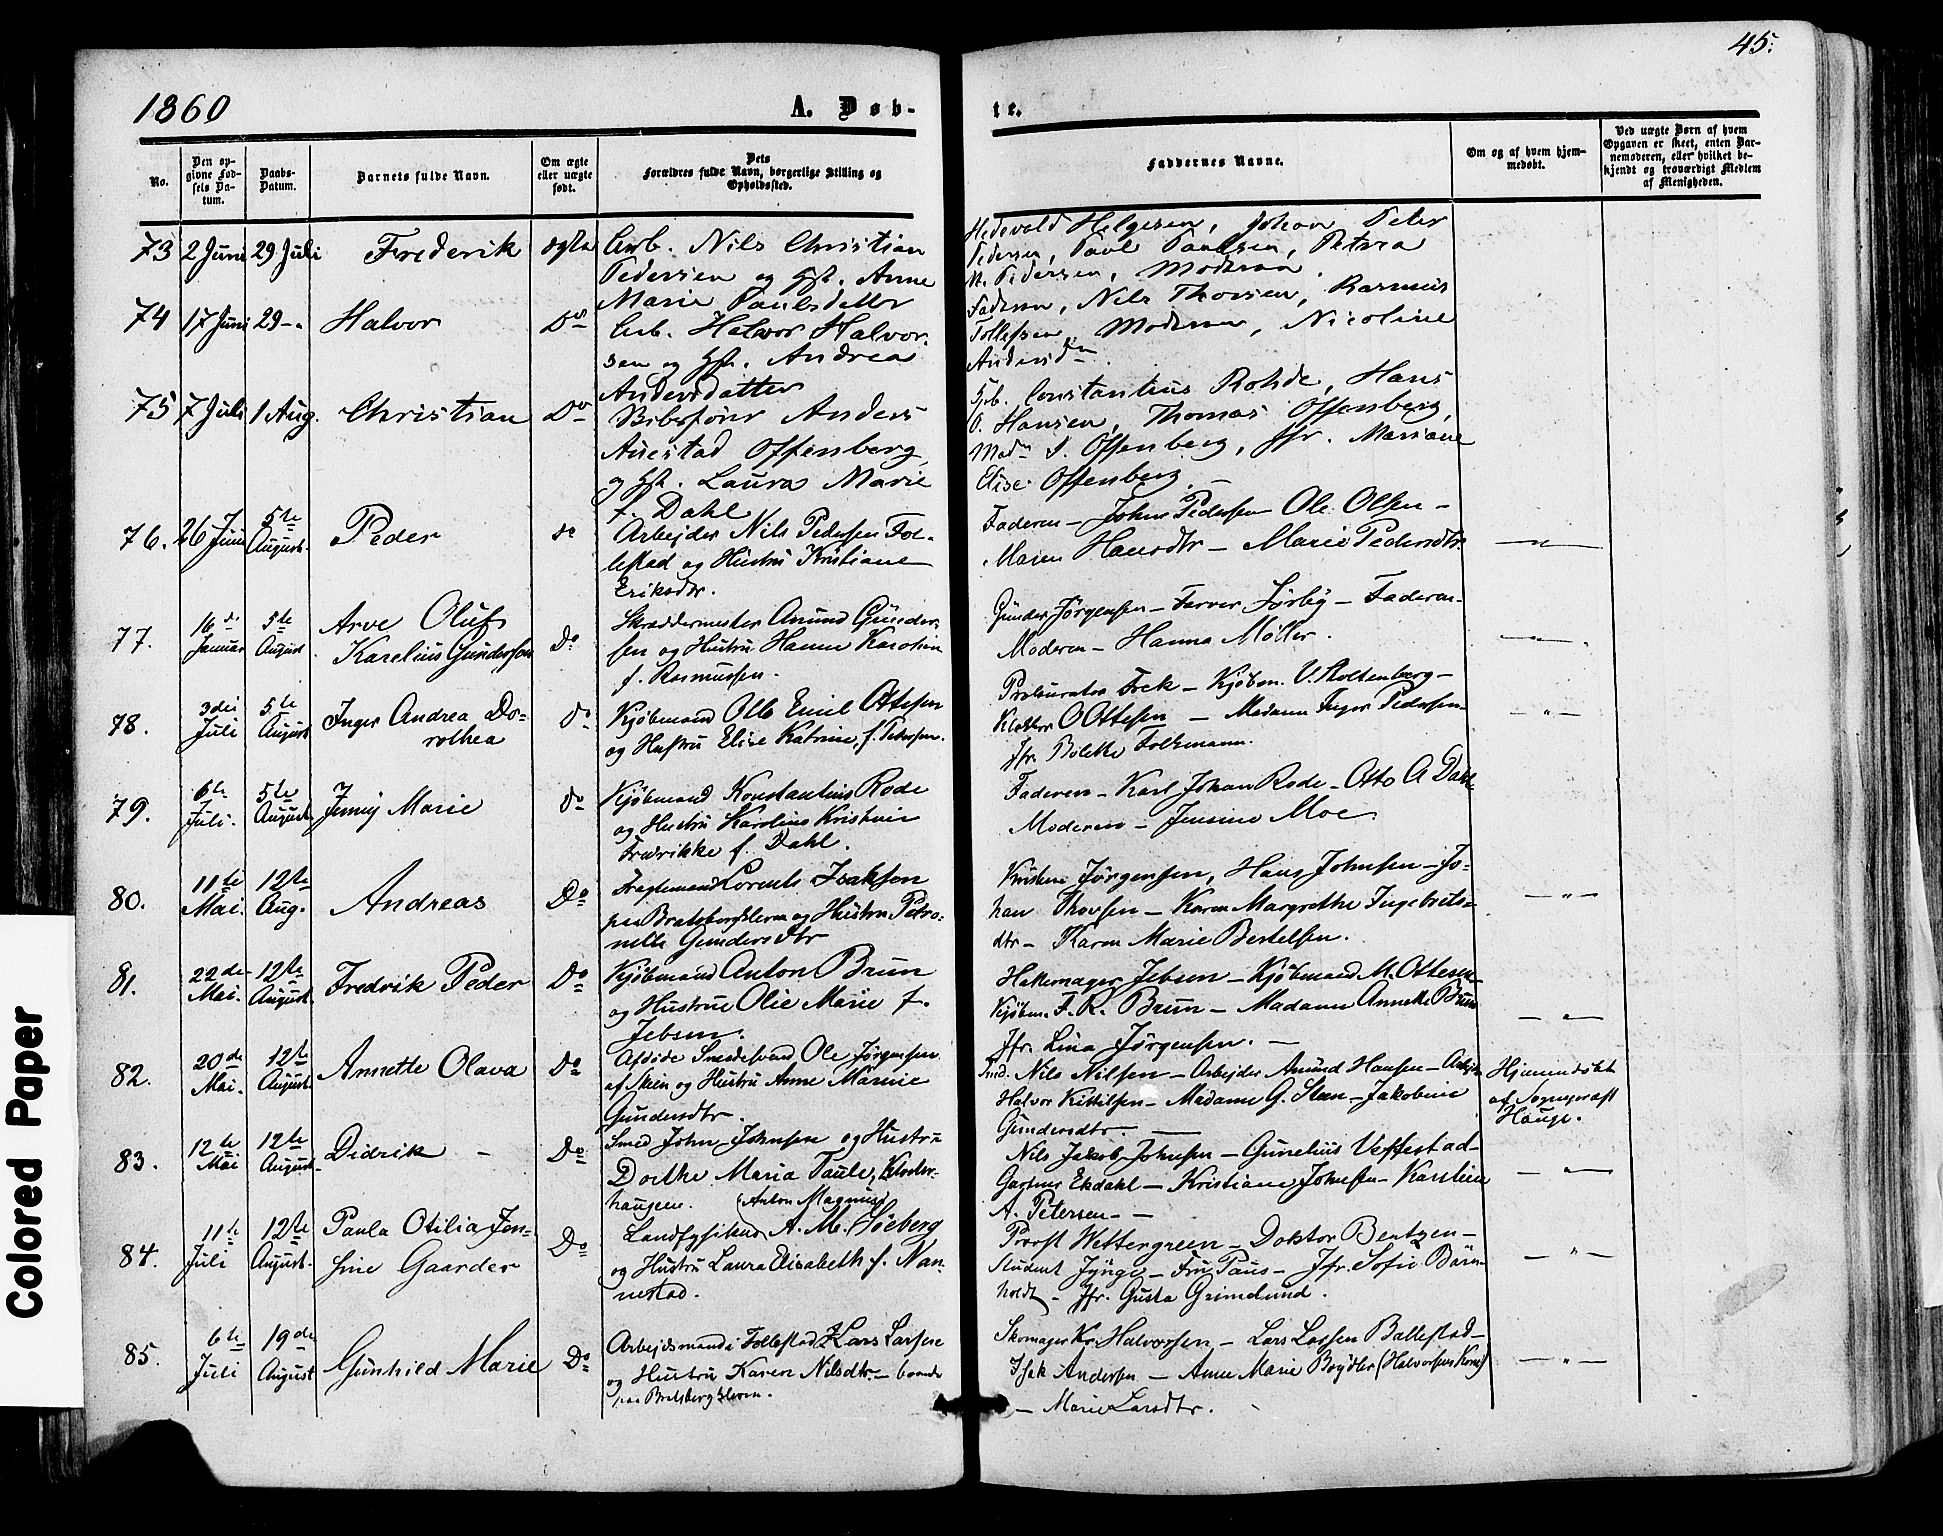 45.
1860
A. Døb-
te.
No.
Den opgivne Fødsels Datum.
Daabs-Datum.
Barnets fulde Navn.
Om ægte eller uægte født.
Dets
Forældres fulde Navn, borgerlige Stilling og Opholdssted.
Faddernes Navne.
Om og af hvem hjemmedøbt.
Ved uægte Børn af hvem Opgaven er skeet, enten Barnemoderen, eller hvilket bekjendt og troværdigt Medlem af Menigheden.
73 2 Juni 29 Juli Frederik ægte Arb. Nils Christian
Pedersen og Hst. Anne
Marie Paulsdatter
Hedevold Helgesen, Johan Peter
Pedersen, Paul Paulsen, Petrea
M. Pedersen, Moderen.
74 17 Juni 29 -"- Halvor Do Arb. Halvor Halvor-
sen og Hst. Andrea
Andersdatter
Faderen, Nils Thorsen, Rasmus
Tollefsen, Moderen, Nicoline
Andersdtr
75 7 Juli 1 Aug. Christian Do Anders
Auestad Offenberg
og Hst. Laura Marie
f. Dahl
Kjb. Constantius Rohde, Hans
O. Hansen, Thomas Offenberg,
Madm S. Offenberg, Jfr. Mariane
Elise Offenberg. -
76. 26 Juni 5te August. Peder do Arbejder Nils Pedersen Fol-
lestad og Hustru Kristiane
Eriksdtr.
Faderen - John Pedersen Ole Olsen -
Maren Hansdtr - Marie Pedersdtr. - " -
77. 16de Januar 5te August Arve Oluf
Karelius Gundersen Do Skræddermester Anund Gunder-
sen og Hustru Hanne Karoline
f. Rasmussen.
Gunder Jørgensen - Farver Sørby - Faderen -
Moderen - Hanna Møller. - " -
78. 3die Juli 5te August Inger Andrea Do-
rothea do Kjøbmand Ole Emil Ottesen
og Hustru Elise Katrine, f. Petersen.
Prokurator Frek - Kjøbm. V. Stoltenberg -
Klokker O Ottesen - Madame Inger Pedersen -
Jfr. Bolette Folkmann. - " -
79. 6te Juli. 5te August Jenny Marie do Kjøbmand Konstantius Rode
og Hustru Karoline Kristine
Fredrikke f. Dahl.
Faderen - Karl Johan Rode - Otto A Dahl -
Moderen - Jensine Moe
80. 11te Mai. 12te Aug. Andreas Do Lorents Isaksen
paa Bratsbergkleven og Hustru Petro-
nelle Gundersdtr
Jørgensen, Hans Johnsen - Jo-
han Thovsen - Karen Margrethe Ingebrets-
dtr - Karen Marie Bertelsen. - " -
81. 22de Mai. 12te August. Fredrik Peder Do Kjøbmand Anton Brun
og Hustru Olie Marie f.
Jebsen.
Jebsen - Kjøbmand M. Ottesen -
Kjøbm. F. R. Brun - Madame Annette Brun
Jfr. Lina Jørgensen. - - " -
82. 20de Mai. 12te August. Annette Olava Do Afdøde Smedesvend Ole Jørgensen
af Skien og Hustru Anne Marie
Gundersdtr.
Nils Nilsen - Arbejder Amund Hansen - Arbejder
Halvor Kittilsen - Madame G. Steen - Jakobine
Gundersdtr. -
Hjemmedøbt
af Sogneprest
Hauge.
83. 12te Mai 12te August. Didrik - Do Smed John Johnsen og Hustru
Dorthe Maria Paule, Kloster-
haugen.
Nils Jakob Johnsen - Gunelius Veffestad -
Gartner Ekdahl - Kristiane Johnsen - Karstine
A. Petersen - - - " -
84. 11te Juli 12te August. Paula Otilia Jen-
sine Gaarder Do (Anton Magnus)
Landfysikus A. M. Søeberg
og Hustru Laura Elisabeth f. Nan-
nestad.
Provst Wettergreen - Doktor Bentzen -
Student Fynge - Fru Paus - Jfr. Sofie Børn-
holdt - Jfr. Gusta Grimelund. - " -
85. 6te Juli 19de August Gunhild Marie Do Arbejdsmand i Follestad, Lars Larsen
og Hustru Karen Nilsdtr. - boende
paa Bratsbergkleven.
Skomager Kr. Halvorsen - Lars Larsen Ballestad -
Isak Andersen - Anne Marie Brydler (Halvorsens Kone)
- Marie Larsdtr. - " -
Colored Paper